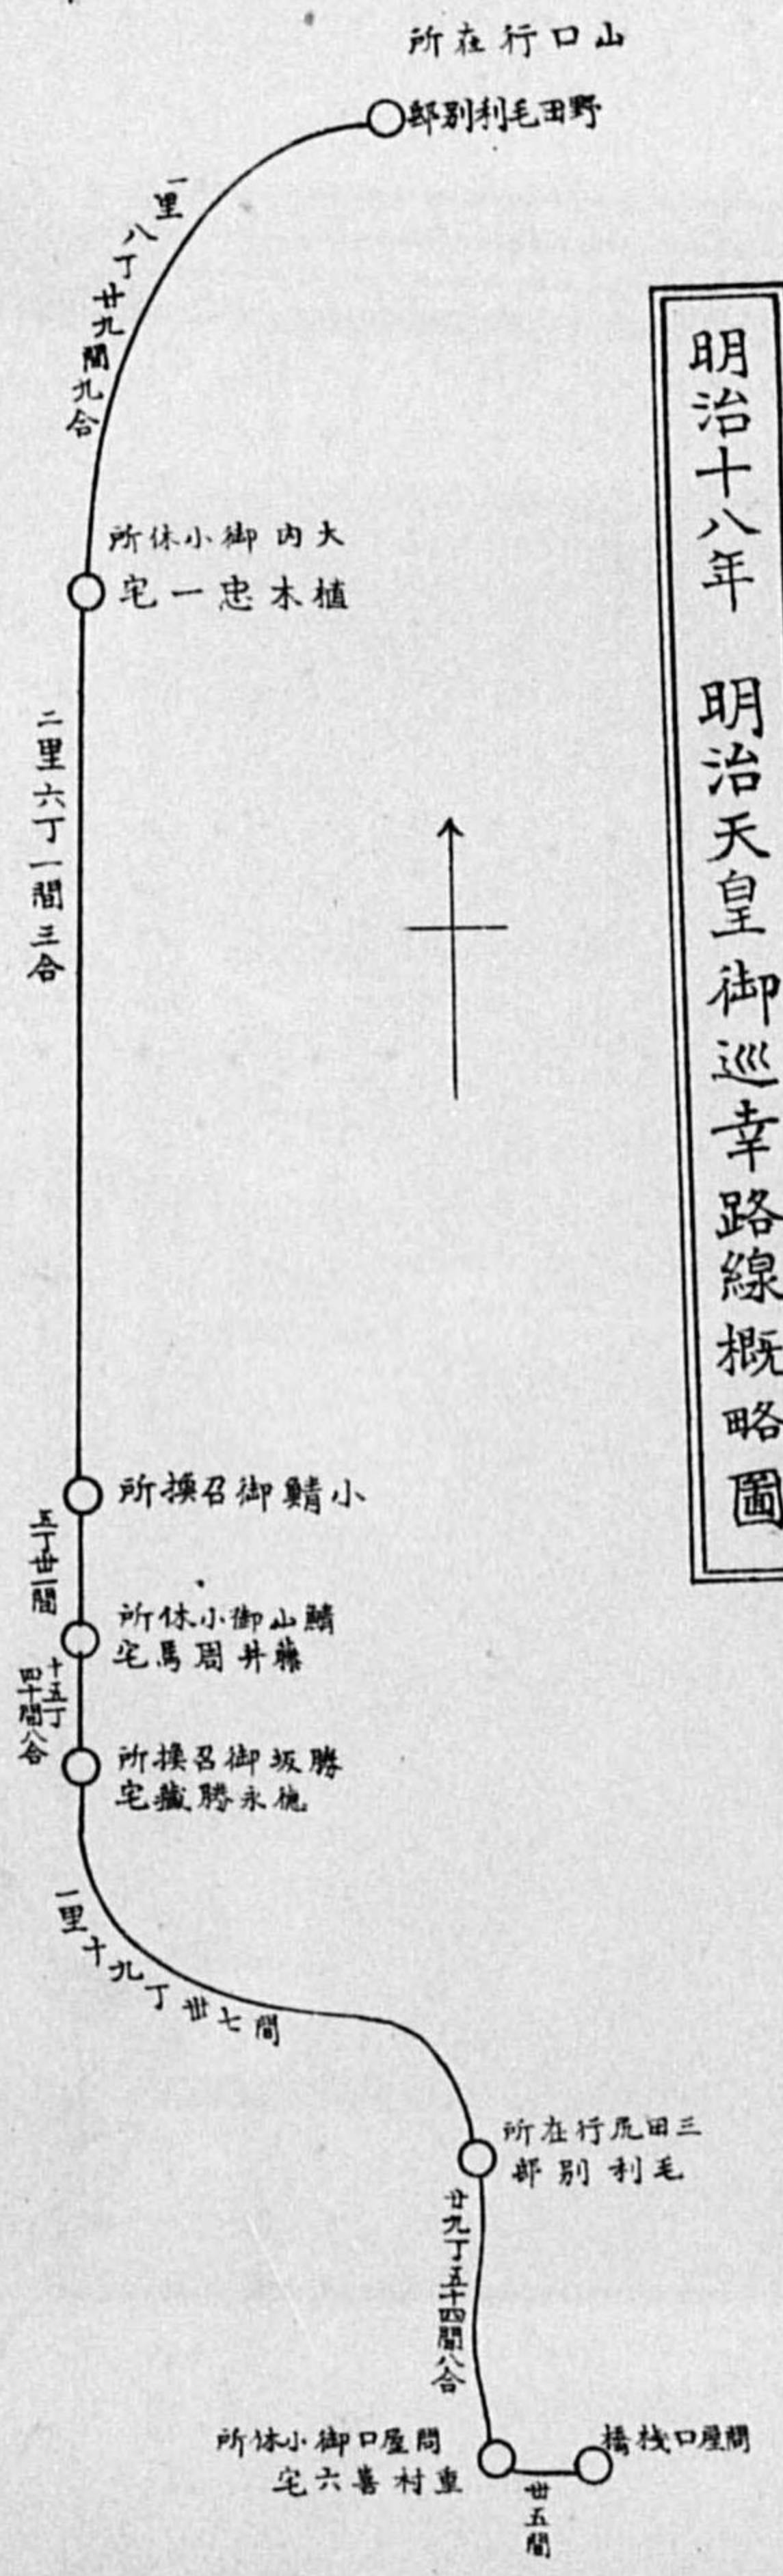 明治十八年　明治天皇御巡幸路線概略圖
山口行在所
野田毛利別邸
一里八丁廿九間九合
大内御小休所
植木忠一宅
二里六丁一間三合
小鯖御召換所
五丁丗一間
鯖山御小休所
藤井周馬宅
十五丁
四十間八合
勝坂御召換所
徳永勝藏宅
一里十九丁丗七間
三田尻行在所
毛利別邸
廿九丁五十四間八合
問屋口御小休所
重村喜六宅
丗五間
問屋口棧橋